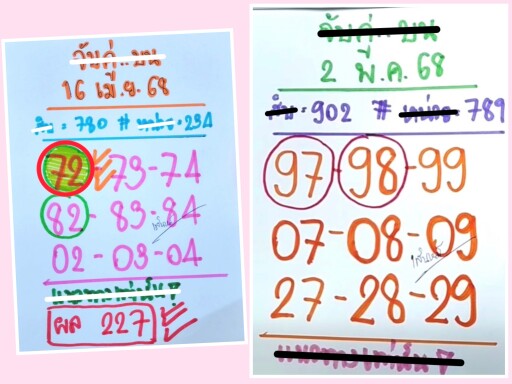 จับคู่..บน
16 เม.ย. 68
สิบ = 780 # หน่วย = 234
72 - 73 - 74
82 - 83 - 84
02 - 03 - 04
ผล 227
จับคู่..บน
2 พ.ค. 68
สิบ = 902 # หน่วย = 789
97 - 98 - 99
07 - 08 - 09
27 - 28 - 29